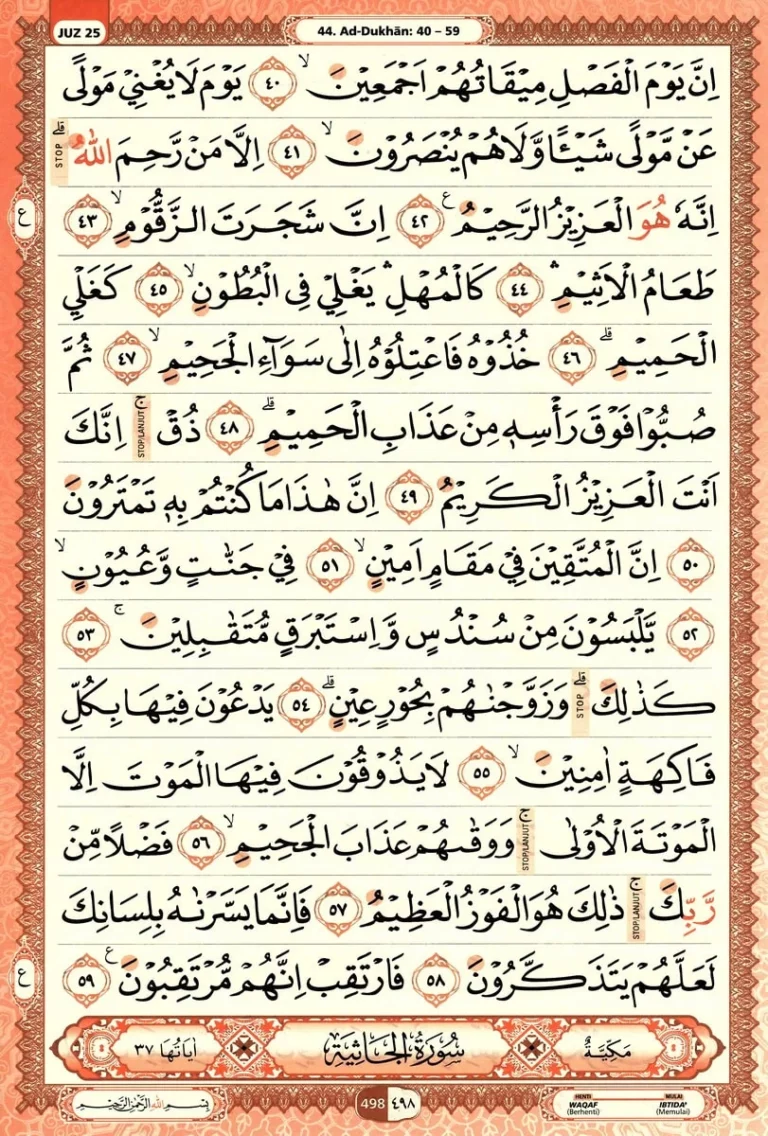 JUZ 25
44. Ad-Dukhān: 40 – 59
اِنَّ يَوْمَ الْفَصْلِ مِيْقَاتُهُمْ اَجْمَعِيْنَ ۙ ٤٠ يَوْمَ لَا يُغْنِيْ مَوْلًى
عَنْ مَّوْلًى شَيْـًٔا وَّلَا هُمْ يُنْصَرُوْنَ ۙ ٤١ اِلَّا مَنْ رَّحِمَ اللّٰهُ ۗ STOP
اِنَّهٗ هُوَ الْعَزِيْزُ الرَّحِيْمُ ࣖ ٤٢ اِنَّ شَجَرَتَ الزَّقُّوْمِ ۙ ٤٣
طَعَامُ الْاَثِيْمِ ۛ ٤٤ كَالْمُهْلِ ۛ يَغْلِيْ فِى الْبُطُوْنِ ۙ ٤٥ كَغَلْيِ
الْحَمِيْمِ ۗ ٤٦ خُذُوْهُ فَاعْتِلُوْهُ اِلٰى سَوَاۤءِ الْجَحِيْمِ ۙ ٤٧ ثُمَّ
صُبُّوْا فَوْقَ رَأْسِهٖ مِنْ عَذَابِ الْحَمِيْمِ ۗ ٤٨ ذُقْ ۚ STOP/LANJUT اِنَّكَ
اَنْتَ الْعَزِيْزُ الْكَرِيْمُ ٤٩ اِنَّ هٰذَا مَا كُنْتُمْ بِهٖ تَمْتَرُوْنَ
٥٠ اِنَّ الْمُتَّقِيْنَ فِيْ مَقَامٍ اَمِيْنٍ ۙ ٥١ فِيْ جَنّٰتٍ وَّعُيُوْنٍ ۙ
٥٢ يَّلْبَسُوْنَ مِنْ سُنْدُسٍ وَّاِسْتَبْرَقٍ مُّتَقٰبِلِيْنَ ۚ ٥٣
كَذٰلِكَ ۗ STOP وَزَوَّجْنٰهُمْ بِحُوْرٍ عِيْنٍ ۗ ٥٤ يَدْعُوْنَ فِيْهَا بِكُلِّ
فَاكِهَةٍ اٰمِنِيْنَ ۙ ٥٥ لَا يَذُوْقُوْنَ فِيْهَا الْمَوْتَ اِلَّا
الْمَوْتَةَ الْاُوْلٰى ۚ STOP/LANJUT وَوَقٰىهُمْ عَذَابَ الْجَحِيْمِ ۙ ٥٦ فَضْلًا مِّنْ
رَّبِّكَ ۚ STOP/LANJUT ذٰلِكَ هُوَ الْفَوْزُ الْعَظِيْمُ ٥٧ فَاِنَّمَا يَسَّرْنٰهُ بِلِسَانِكَ
لَعَلَّهُمْ يَتَذَكَّرُوْنَ ٥٨ فَارْتَقِبْ اِنَّهُمْ مُّرْتَقِبُوْنَ ࣖ ٥٩
ع
ع
مَكِيَّةٌ سُوْرَةُ الْجَاثِيَةِ اٰيَاتُهَا ٣٧
بِسْمِ اللّٰهِ الرَّحْمٰنِ الرَّحِيْمِ
498 ٤٩٨
HENTI MULAI
WAQAF IBTIDA'
(Berhenti) (Memulai)